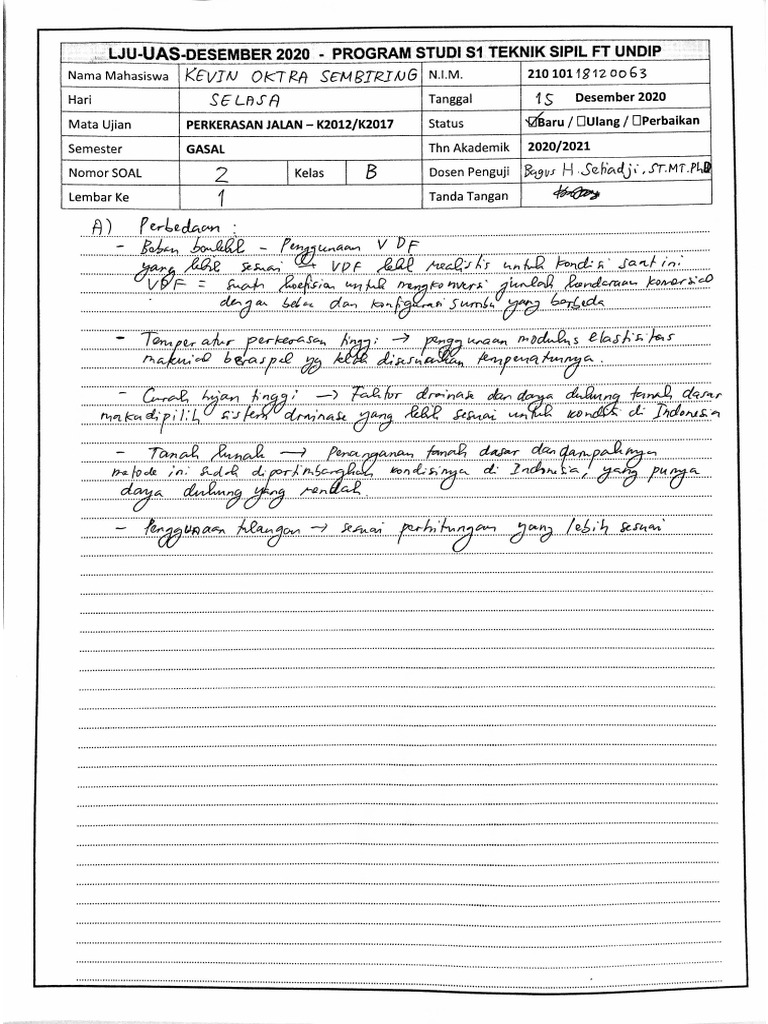 LJU-UAS-DESEMBER 2020 - PROGRAM STUDI S1 TEKNIK SIPIL FT UNDIP
Nama Mahasiswa KEVIN OKTRA SEMBIRING N.I.M. 210 101 18120063
Hari SELASA Tanggal 15 Desember 2020
Mata Ujian PERKERASAN JALAN – K2012/K2017 Status ☑Baru / ☐Ulang / ☐Perbaikan
Semester GASAL Thn Akademik 2020/2021
Nomor SOAL 2 Kelas B Dosen Penguji Bagus H. Setiadji, ST.MT.PhD
Lembar Ke 1 Tanda Tangan
A) Perbedaan :
- Beban - Penggunaan VDF
yang lebih sesuai → VDF lebih realistis untuk kondisi saat ini
VDF = suatu koefisien untuk mengkonversi jumlah kendaraan komersial
dengan beban dan konfigurasi sumbu yang berbeda
- Temperatur perkerasan tinggi → penggunaan modulus elastisitas
material beraspal yg telah disesuaikan temperaturnya.
- Curah hujan tinggi → Faktor drainase dan daya dukung tanah dasar
maka dipilih sistem drainase yang lebih sesuai untuk kondisi di Indonesia
- Tanah lunak → Penanganan tanah dasar dan dampaknya
metode ini sudah dipertimbangkan kondisinya di Indonesia, yang punya
daya dukung yang rendah.
- Penggunaan → sesuai perhitungan yang lebih sesuai